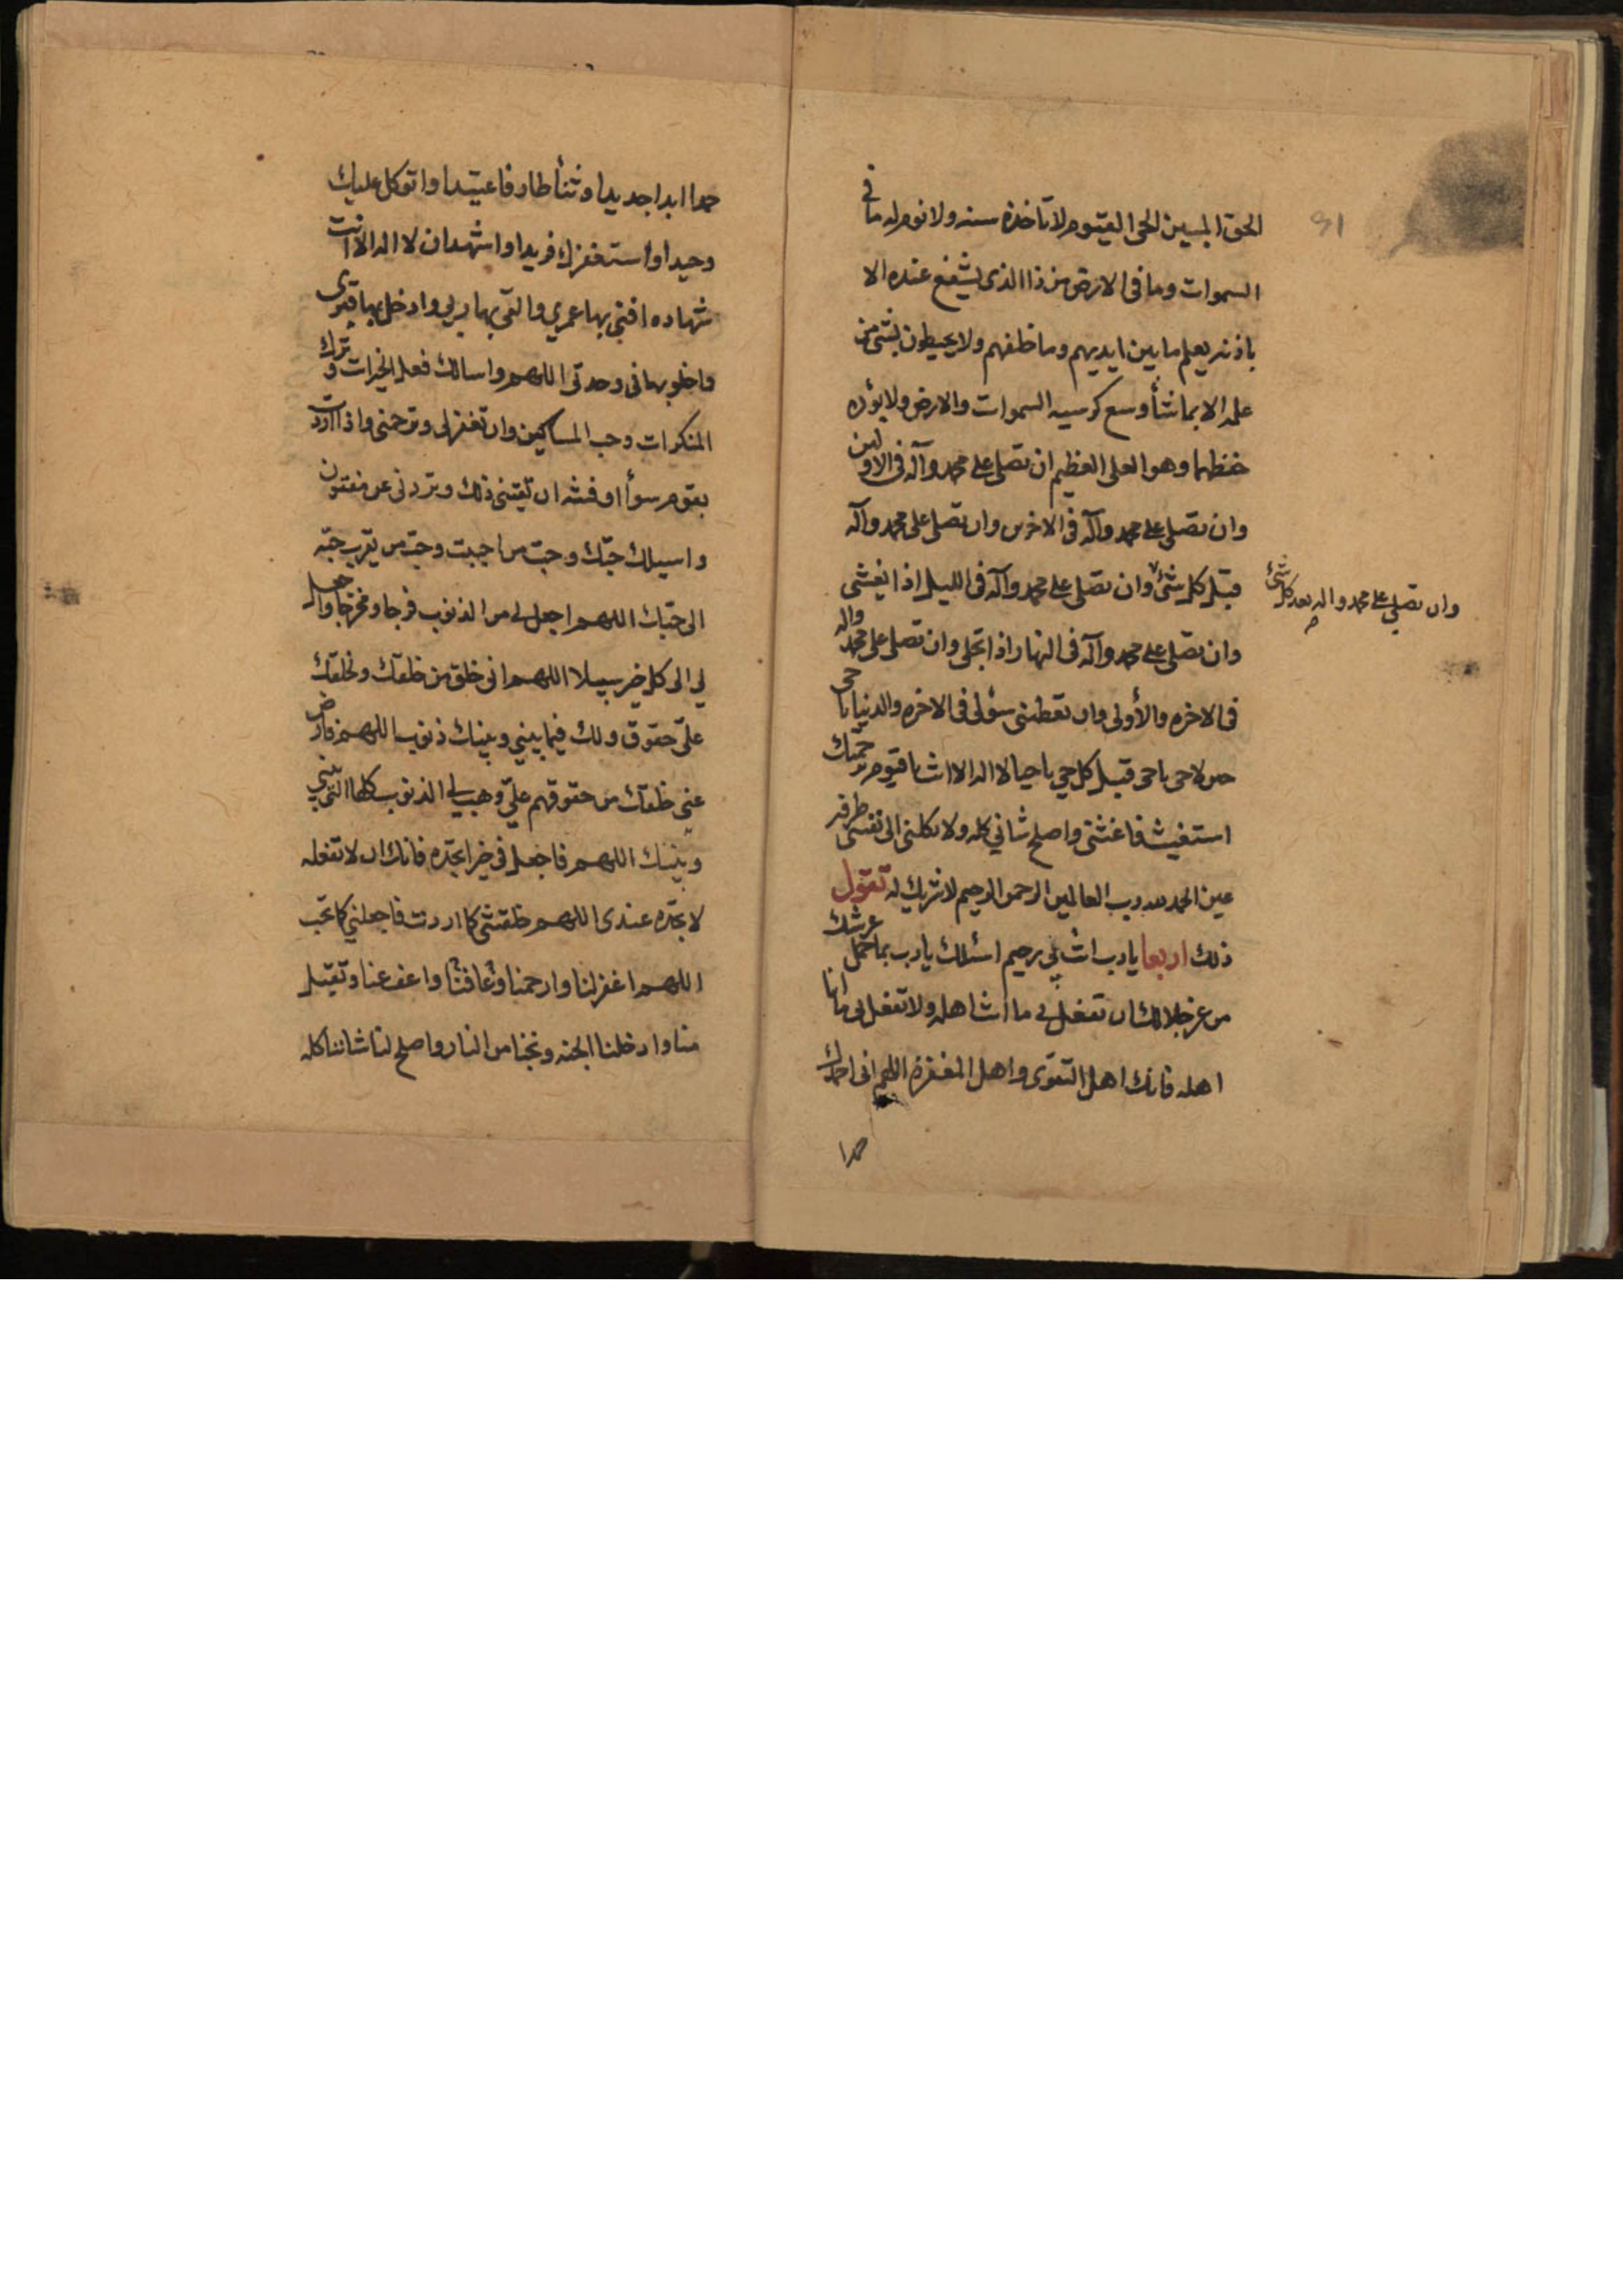 الحق المبین الحی القیوم لا تاخذه سنه ولا نوم له ما فی
السموات وما فی الارض من ذا الذی یشفع عنده الا
باذنه یعلم ما بین ایدیهم وما خلفهم ولا یحیطون بشئ من
علمه الا بما شأ وسع کرسیه السموات والارض ولا یؤده
حفظهما وهو العلی العظیم ان تصلی علی محمد وآله فی الاولین
وان تصلی علی محمد وآله فی الاخرین وان تصلی علی محمد وآله
قبل کل شئ وان تصلی علی محمد وآله فی اللیل اذا یغشی
وان تصلی علی محمد واله بعد کل شئ
وان تصلی علی محمد وآله فی النهار اذا تجلی وان تصلی علی محمد واله
فی الاخره والأولی وان تعطینی سؤلی فی الاخره والدنیا یا حی
حین لا حی یا حی قبل کل حی یا حیا لا اله الا انت یا قیوم برحمتك
استغیث فاغثنی واصلح شانی کله ولا تکلنی الی نفسی طرفه
عین الحمد لله رب العالمین الرحمن الرحیم لا شریك له تقول
ذلك اربعا یا رب انت بی رحیم اسئلك یا رب بما حمل عرشك
من عز جلالك ان تفعل بی ما انت اهله ولا تفعل بی ما انا
اهله فانك اهل التقوی واهل المغفرة اللهم انی احمدك
حمدا
حمدا ابدا جدیدا وثنأ طارفا عتیدا واتوکل علیك
وحیدا واستغفرك فریدا واشهد ان لا اله الا انت
شهاده افنی بها عمری والقی بها ربی وادخل بها قبری
واخلو بها فی وحدتی اللهم واسالك فعل الخیرات وترك
المنکرات وحب المساکین وان تغفر لی وترحمنی واذا اردت
بقوم سوأ او فتنه ان تقینی ذلك وتردنی غیر مفتون
واسیلك حبّك وحبّ من احببت وحبّ من یقرب حبّه
الی حبّك اللهم اجعل لی من الذنوب فرجا ومخرجا واجعل
لی الی کل خیر سبیلا اللهم انی خلق من خلقك ولخلقك
علیّ حقوق ولك فیما بینی وبینك ذنوب اللهم فارض
عنی خلقك من حقوقهم علیّ وهب لی الذنوب کلها التی بینی
وبینك اللهم فاجعل فیّ خیرا تجده فانك ان لا تفعله
لا تجده عندی اللهم خلقتنی کما اردت فاجعلنی کما تحب
اللهم اغفر لنا وارحمنا وعافنا واعف عنا وتقبل
منا وادخلنا الجنه ونجنا من النار واصلح لنا شاننا کله